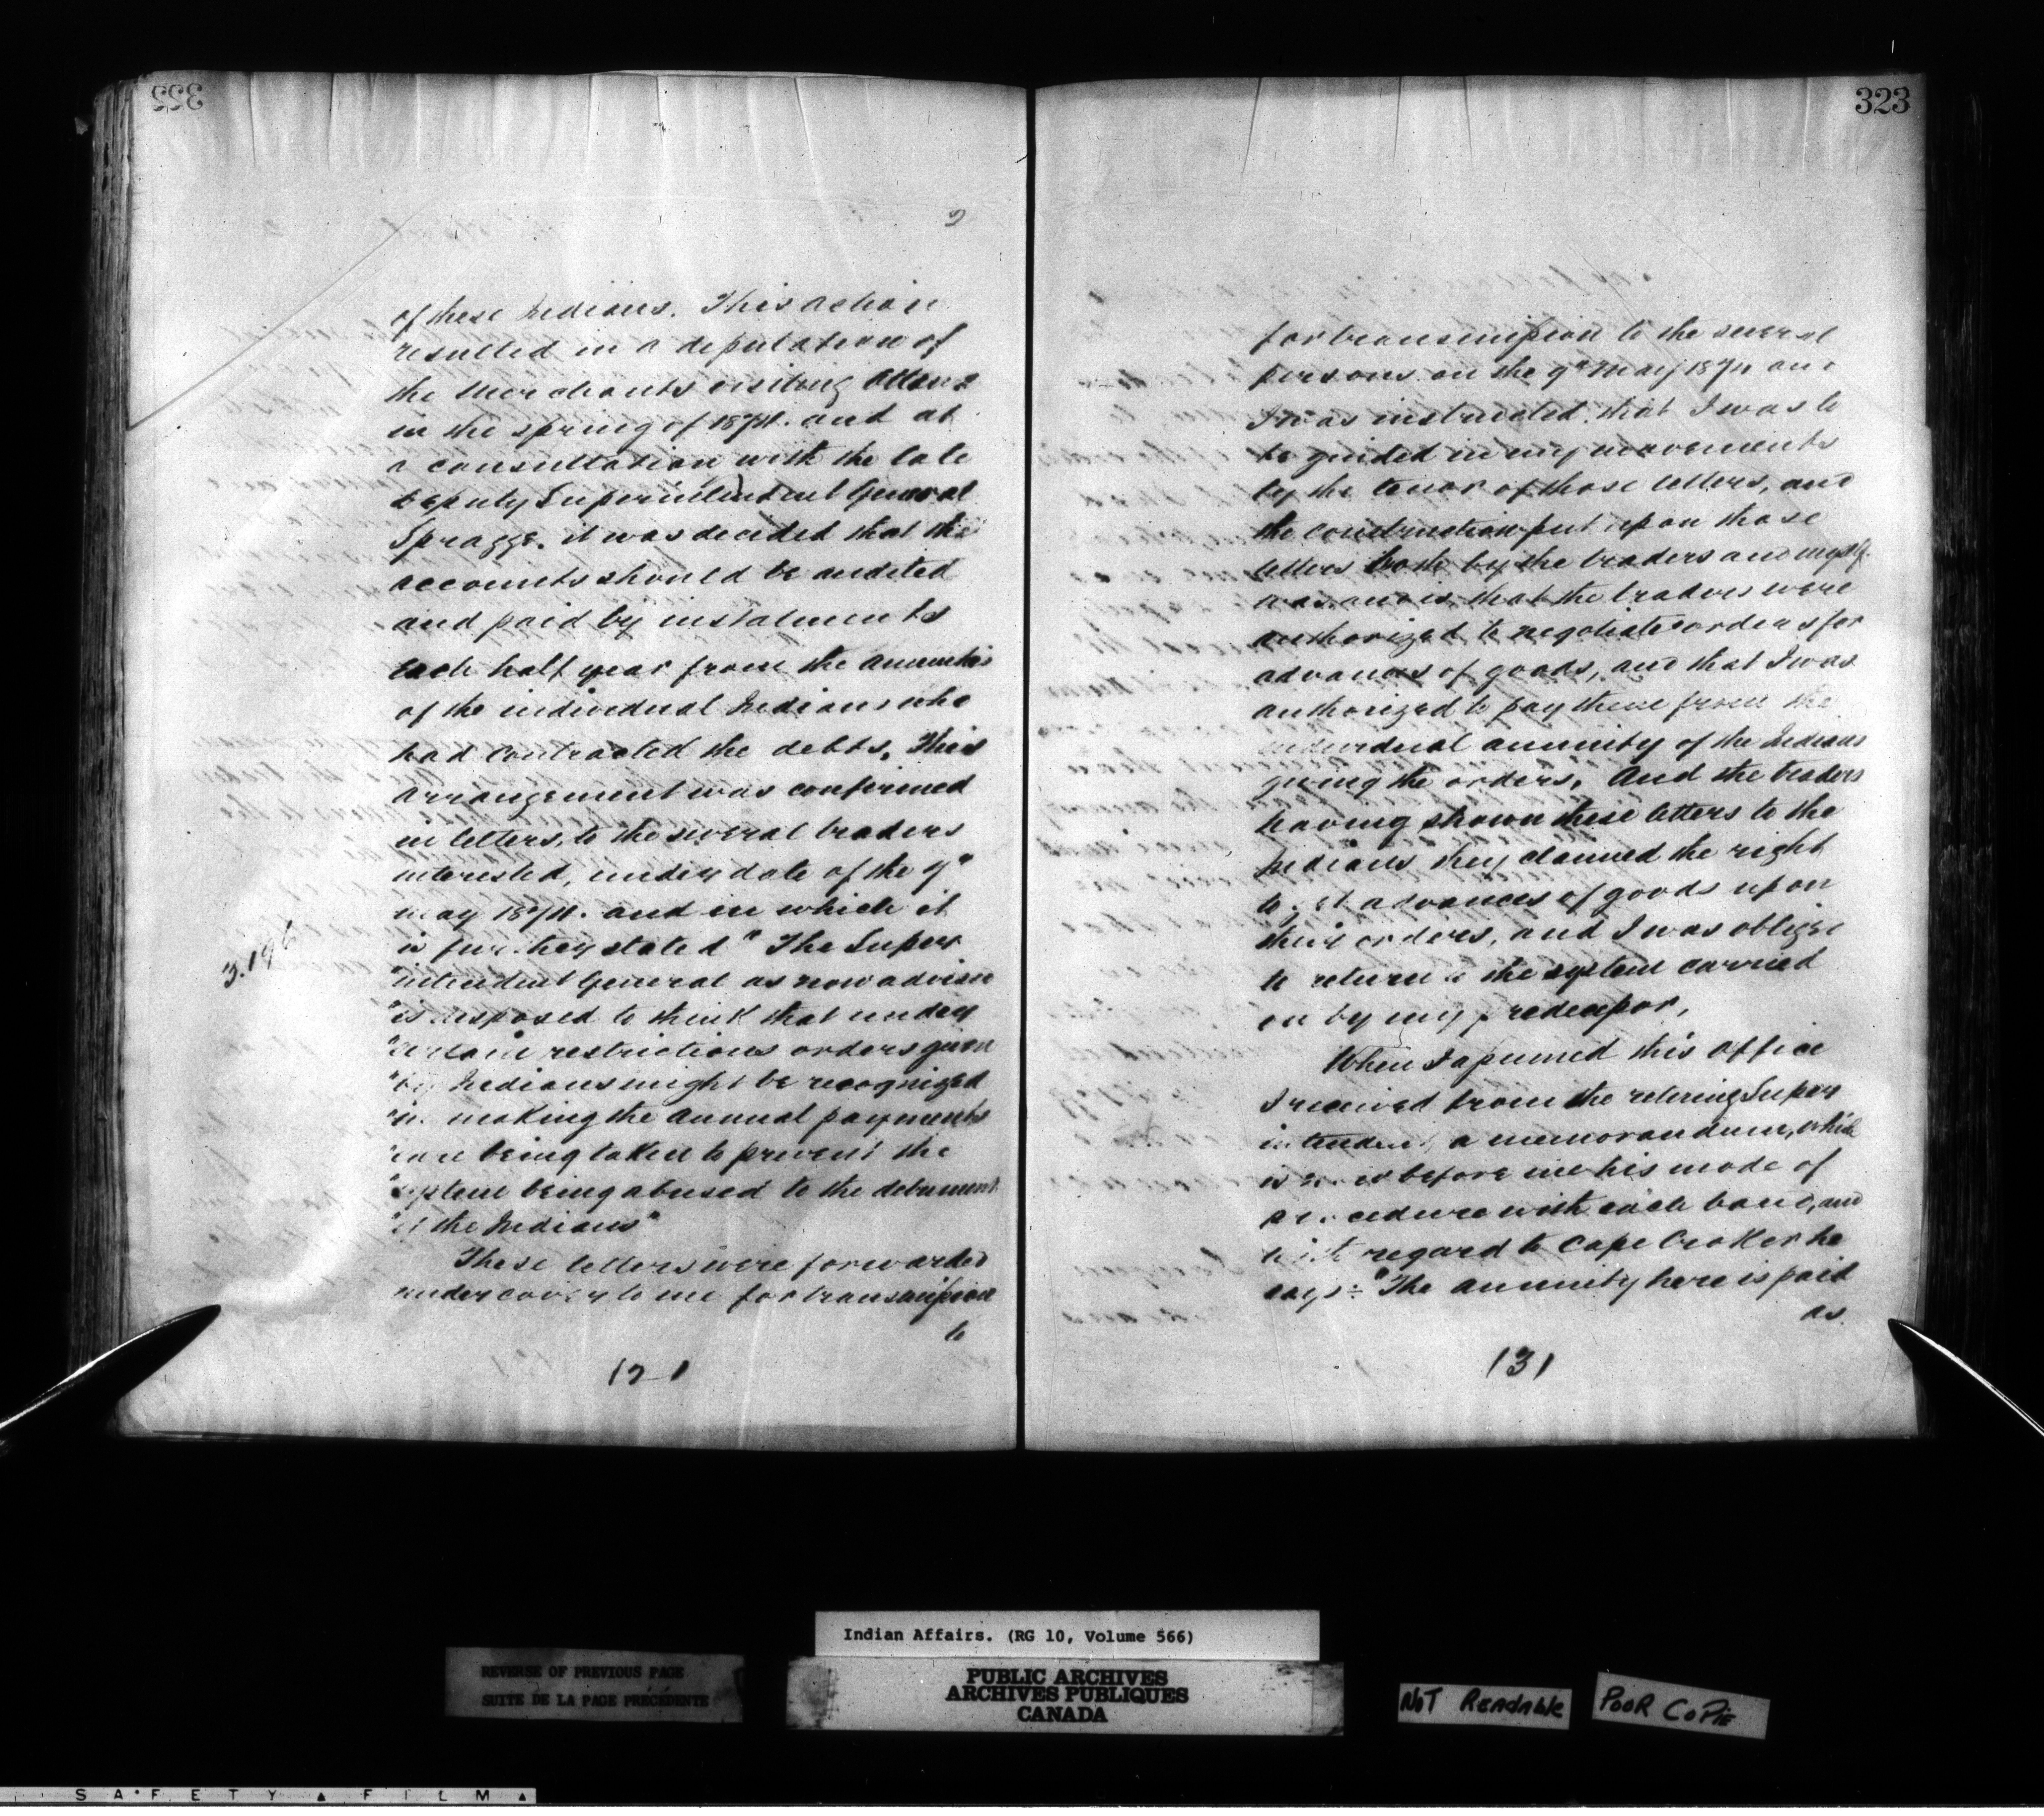 322
2
of these Indians. This action
resulted in a deputation of
the Merchants visiting Ottawa
in the spring of 1874. and at
a consultation with the late
Deputy Superintendent General
Spragge. it was decided that the
accounts should be audited
and paid by instalments
each half year from the annuities
of the individual Indians who
had contracted the debts. This
arrangement was confirmed
in letters, to the several traders
interested, under date of the 9"
May 1874. and in which it
is further stated "The Super
"intendent General as now advised
"is disposed to think that under
"certain restrictions orders given
"by Indians might be recognized
"in making the annual payments
"care being taken to prevent the
"system being abused to the detriment
"of the Indians"
3.196
These letters were forwarded
under cover to me for transmission
to
121
323
for transmission to the several
persons on the 9" May 1874 and
I was instructed that I was to
be guided in my movements
by the tenor of those letters, and
the construction put upon those
letters both by the traders and myself
was and is, that the traders were
authorized to negotiate orders for
advances of goods, and that I was
authorized to pay them from the
individual annuity of the Indians
giving the orders. And the traders
having shown these letters to the
Indians they claimed the right
to get advances of goods upon
their orders, and I was obliged
to return to the system carried
on by my predecessor,
When I assumed this Office
I received from the retiring Super
intendent, a memorandum, which
is now before me his mode of
procedure with each band, and
with regard to Cape Croker he
says:- "The annuity here is paid
as
131
Indian Affairs. (RG 10, Volume 566)
REVERSE OF PREVIOUS PAGE
SUITE DE LA PAGE PRÉCÉDENTE
PUBLIC ARCHIVES
ARCHIVES PUBLIQUES
CANADA
NOT READABLE
POOR COPIE
SAFETY ▲ FILM ▲